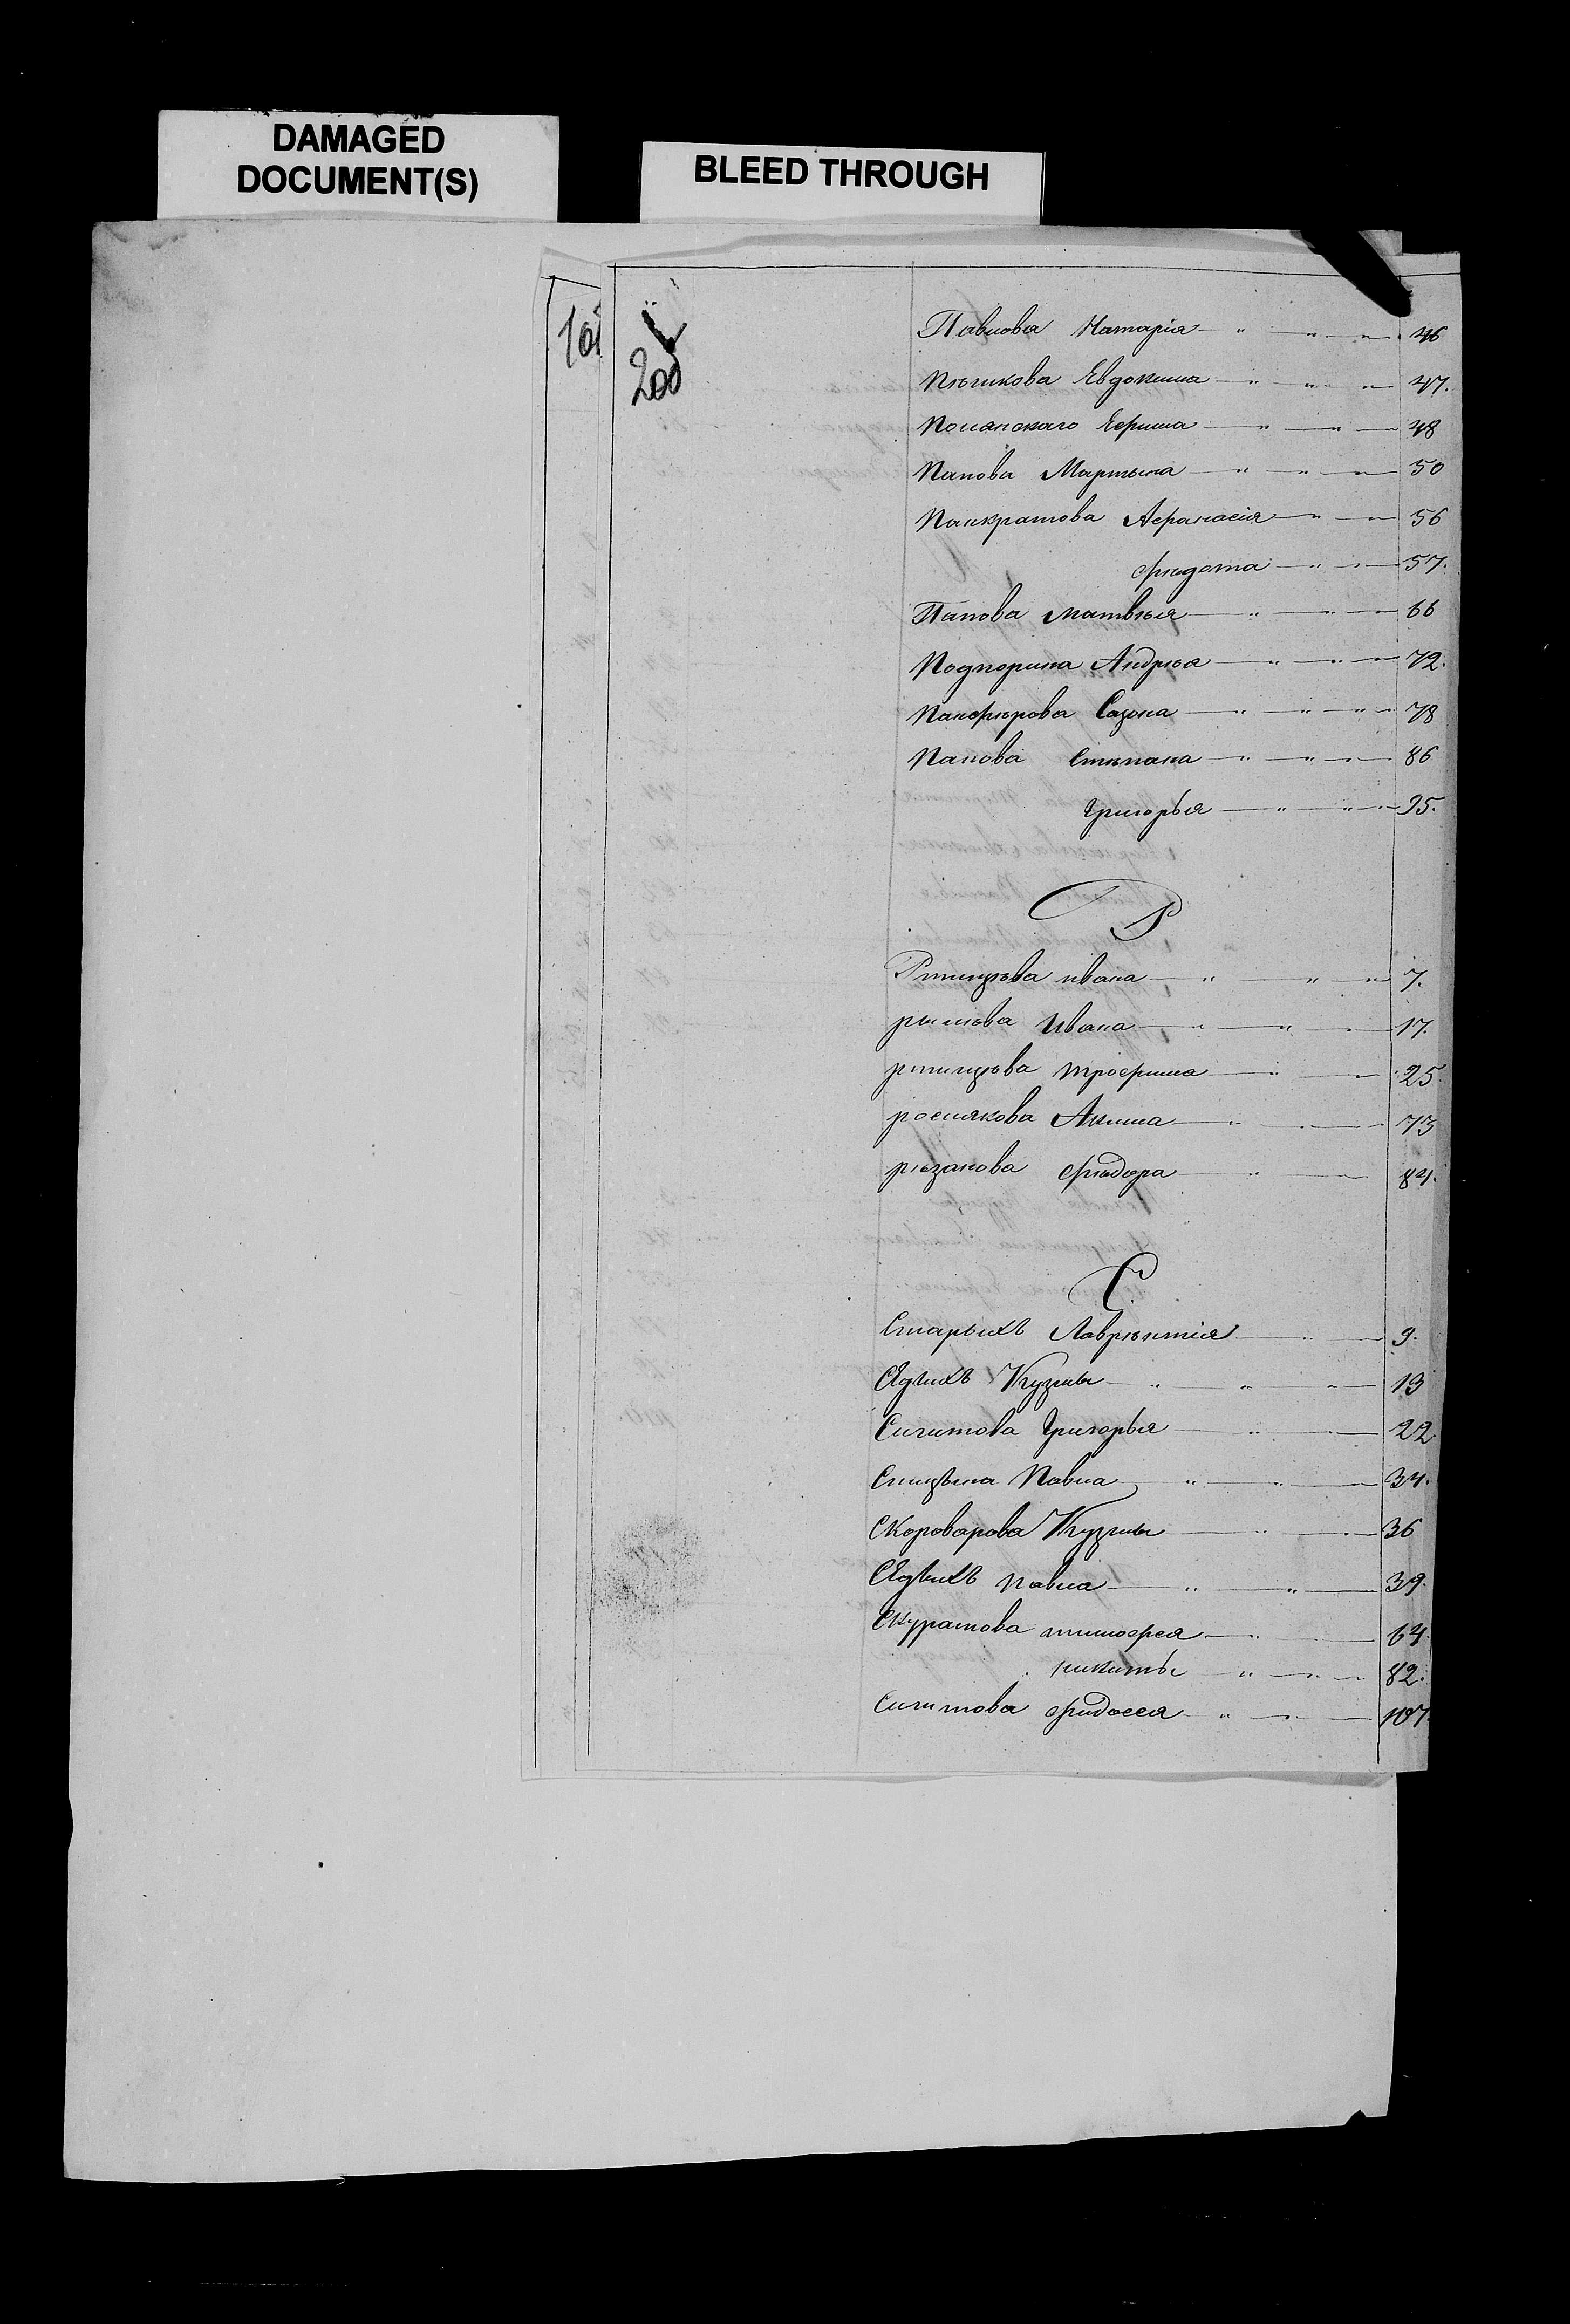 DAMAGED
DOCUMENT(S)
BLEED THROUGH
101
200
Павлова Натарія 46
Пѣчикова Евдокима 47.
Полянскаго Ефима 48
Папова Мартына 50
Панкратова Афанасія 56
Фѣдота 57.
Папова Матвѣя 66
Подпорина Андрѣя 72.
Панфѣрова Сазона 78
Папова Стѣпана 86
Григорья 95.
Р
Ртищѣва ивана 7.
рылѣва Ивана 17.
ртищѣва трофима 25.
рослякова Акима 73
рѣзанова Фѣдора 84.
С
Старыхъ Лаврѣнтія 9.
Сѣдыхъ Кузмы 13
Сигитова Григорья 22
Спицына Павла 34.
Скороварова Кузмы 36
Сѣдыхъ павла 39.
Скуратова тимофея 64.
никиты 82.
Сигитова фидосея 107.